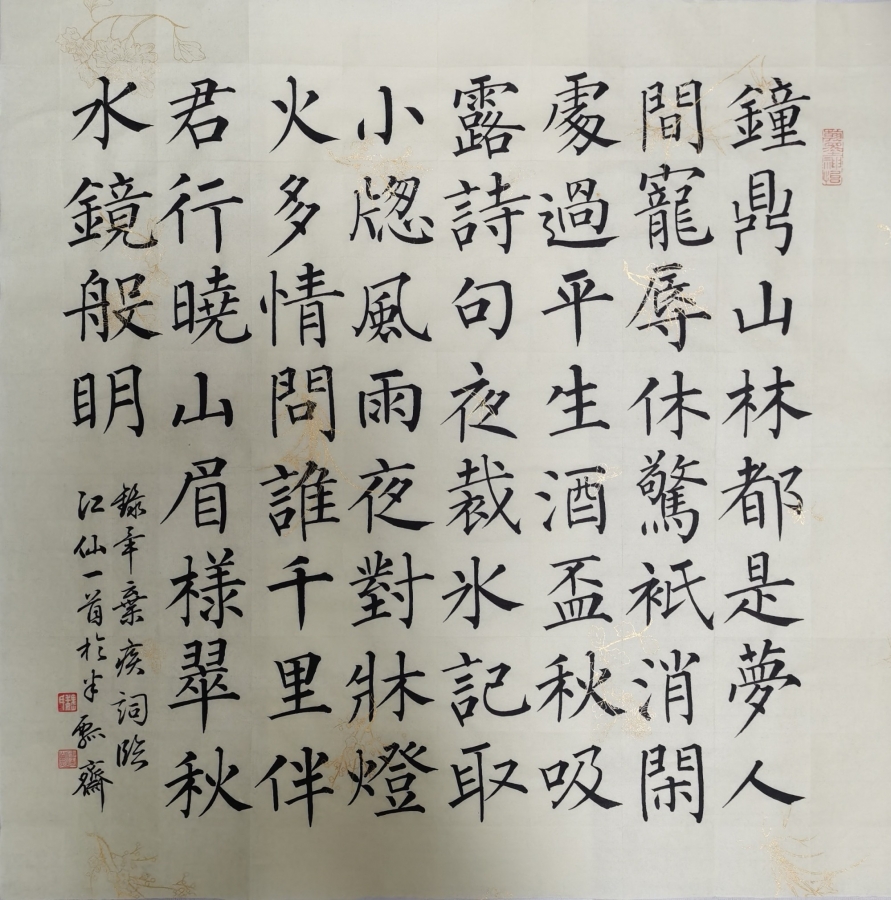 鐘鼎山林都是夢人
間寵辱休驚衹消閑
處過平生酒盃秋吸
露詩句夜裁氷記取
小牕風雨夜對牀燈
火多情問誰千里伴
君行曉山眉樣翠秋
水鏡般眀
錄辛棄疾詞臨
江仙一首於半瓢齋